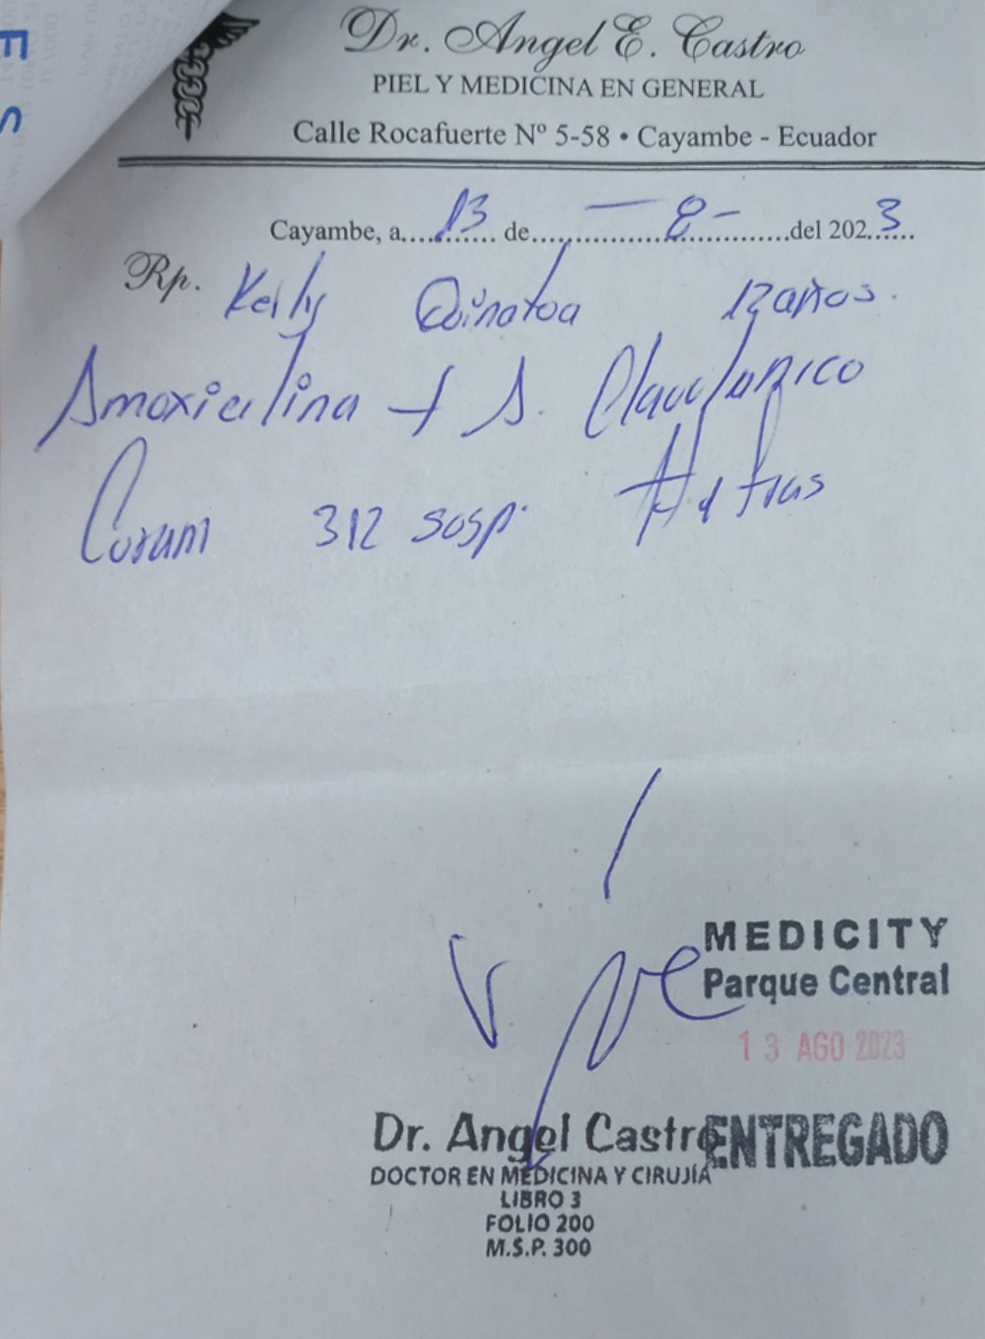 E
S
Dr. Angel E. Castro
PIEL Y MEDICINA EN GENERAL
Calle Rocafuerte Nº 5-58 • Cayambe - Ecuador
Cayambe, a 13 de - 8 - del 2023
Rp. Kerly Quinatoa 12 años.
Amoxicilina + A. Clavulanico
Curam 312 susp.
MEDICITY
Parque Central
13 AGO 2023
Dr. Angel Castro
ENTREGADO
DOCTOR EN MEDICINA Y CIRUJÍA
LIBRO 3
FOLIO 200
M.S.P. 300